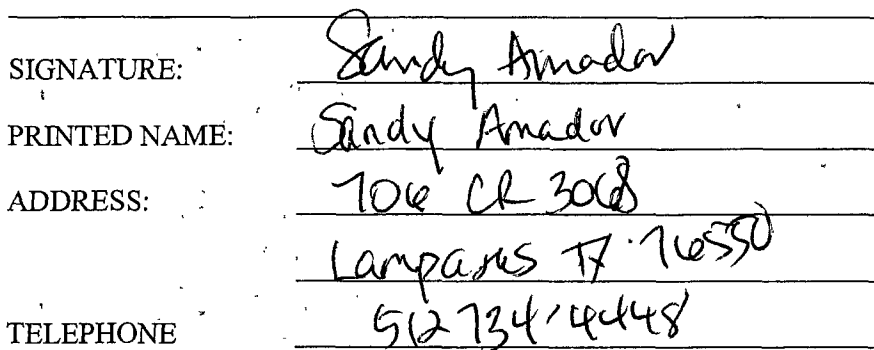 SIGNATURE: Sandy Amador
PRINTED NAME: Sandy Amador
ADDRESS: 706 CR 3068
Lampasas TX 76550
TELEPHONE 512 734-4448